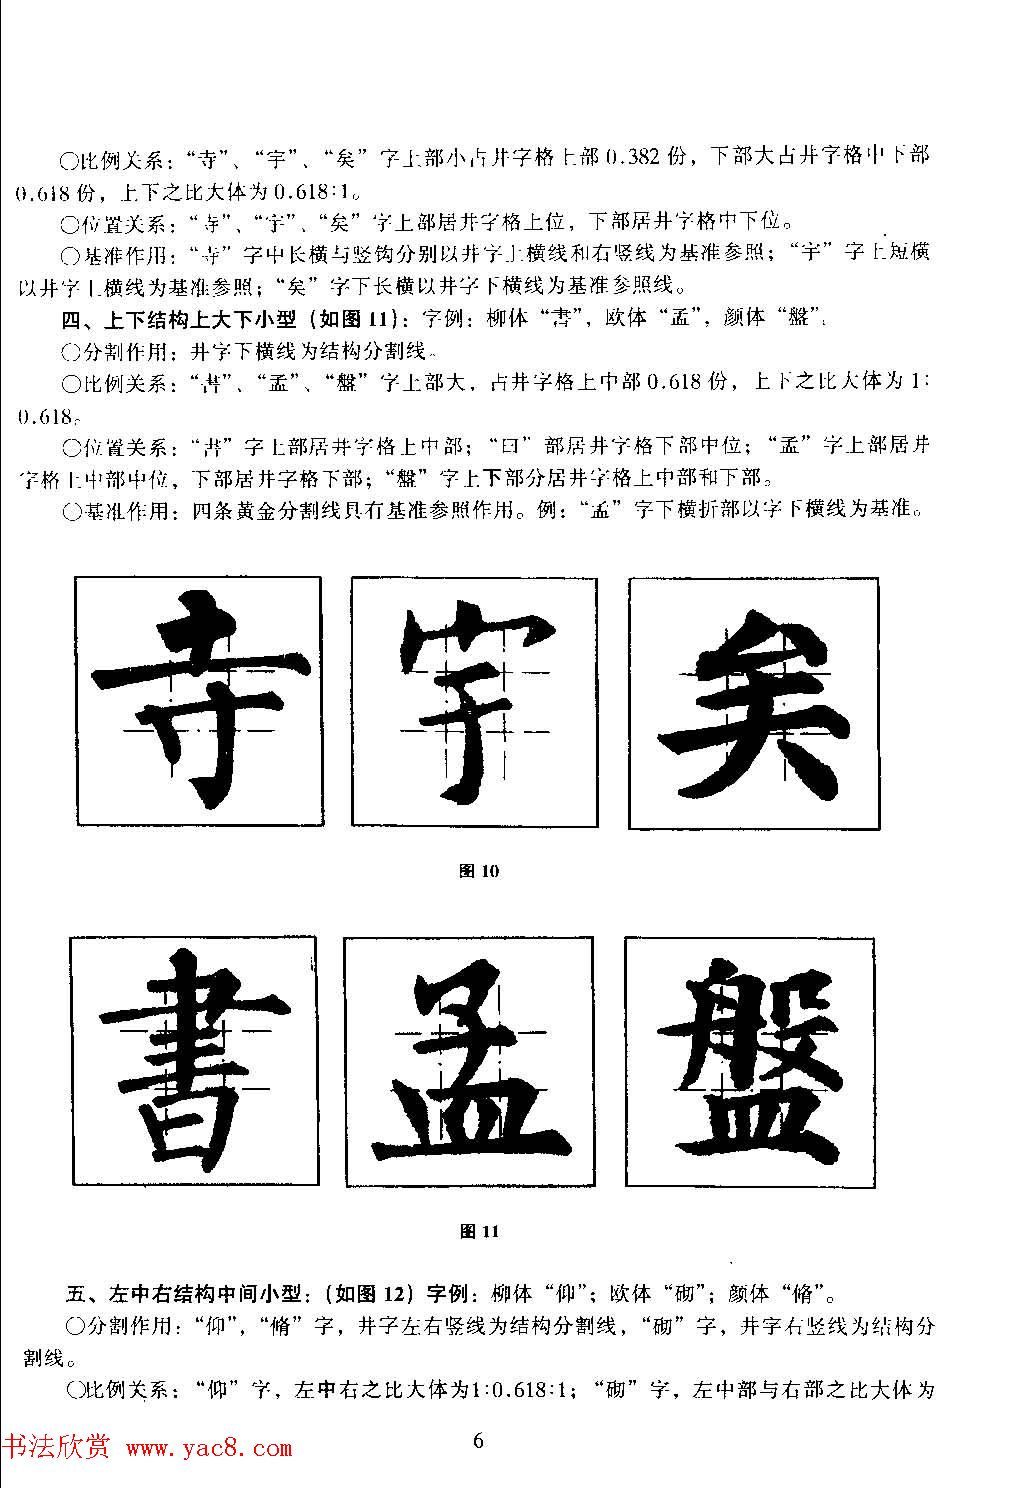 ○比例关系：“寺”、“宇”、“矣”字上部小占井字格上部0.382份，下部大占井字格中下部
0.618份，上下之比大体为0.618∶1。
○位置关系：“寺”、“宇”、“矣”字上部居井字格上位，下部居井字格中下位。
○基准作用：“寺”字中长横与竖钩分别以井字上横线和右竖线为基准参照；“宇”字上短横
以井字上横线为基准参照；“矣”字下长横以井字下横线为基准参照线。
四、上下结构上大下小型（如图11）：字例：柳体“書”，欧体“孟”，颜体“盤”。
○分割作用：井字下横线为结构分割线。
○比例关系：“書”、“孟”、“盤”字上部大，占井字格上中部0.618份，上下之比大体为1∶
0.618。
○位置关系：“書”字上部居井字格上中部；“曰”部居井字格下部中位；“孟”字上部居井
字格上中部中位，下部居井字格下部；“盤”字上下部分居井字格上中部和下部。
○基准作用：四条黄金分割线具有基准参照作用。例：“孟”字下横折部以字下横线为基准。
寺 宇 矣
图10
書 孟 盤
图11
五、左中右结构中间小型：（如图12）字例：柳体“仰”；欧体“砌”；颜体“脩”。
○分割作用：“仰”，“脩”字，井字左右竖线为结构分割线，“砌”字，井字右竖线为结构分
割线。
○比例关系：“仰”字，左中右之比大体为1∶0.618∶1；“砌”字，左中部与右部之比大体为
6
书法欣赏 www.yac8.com